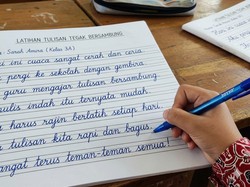 LATIHAN TULISAN TEGAK BERSAMBUNG
Sarah Amira (Kelas 3A)
ini cuaca sangat cerah dan ceria.
pergi ke sekolah dengan gembira
guru mengajar tulisan bersambung
nulis indah itu ternyata mudah.
harus rajin berlatih setiap hari,
tulisan kita rapi dan bagus.
angat terus teman-teman semua!